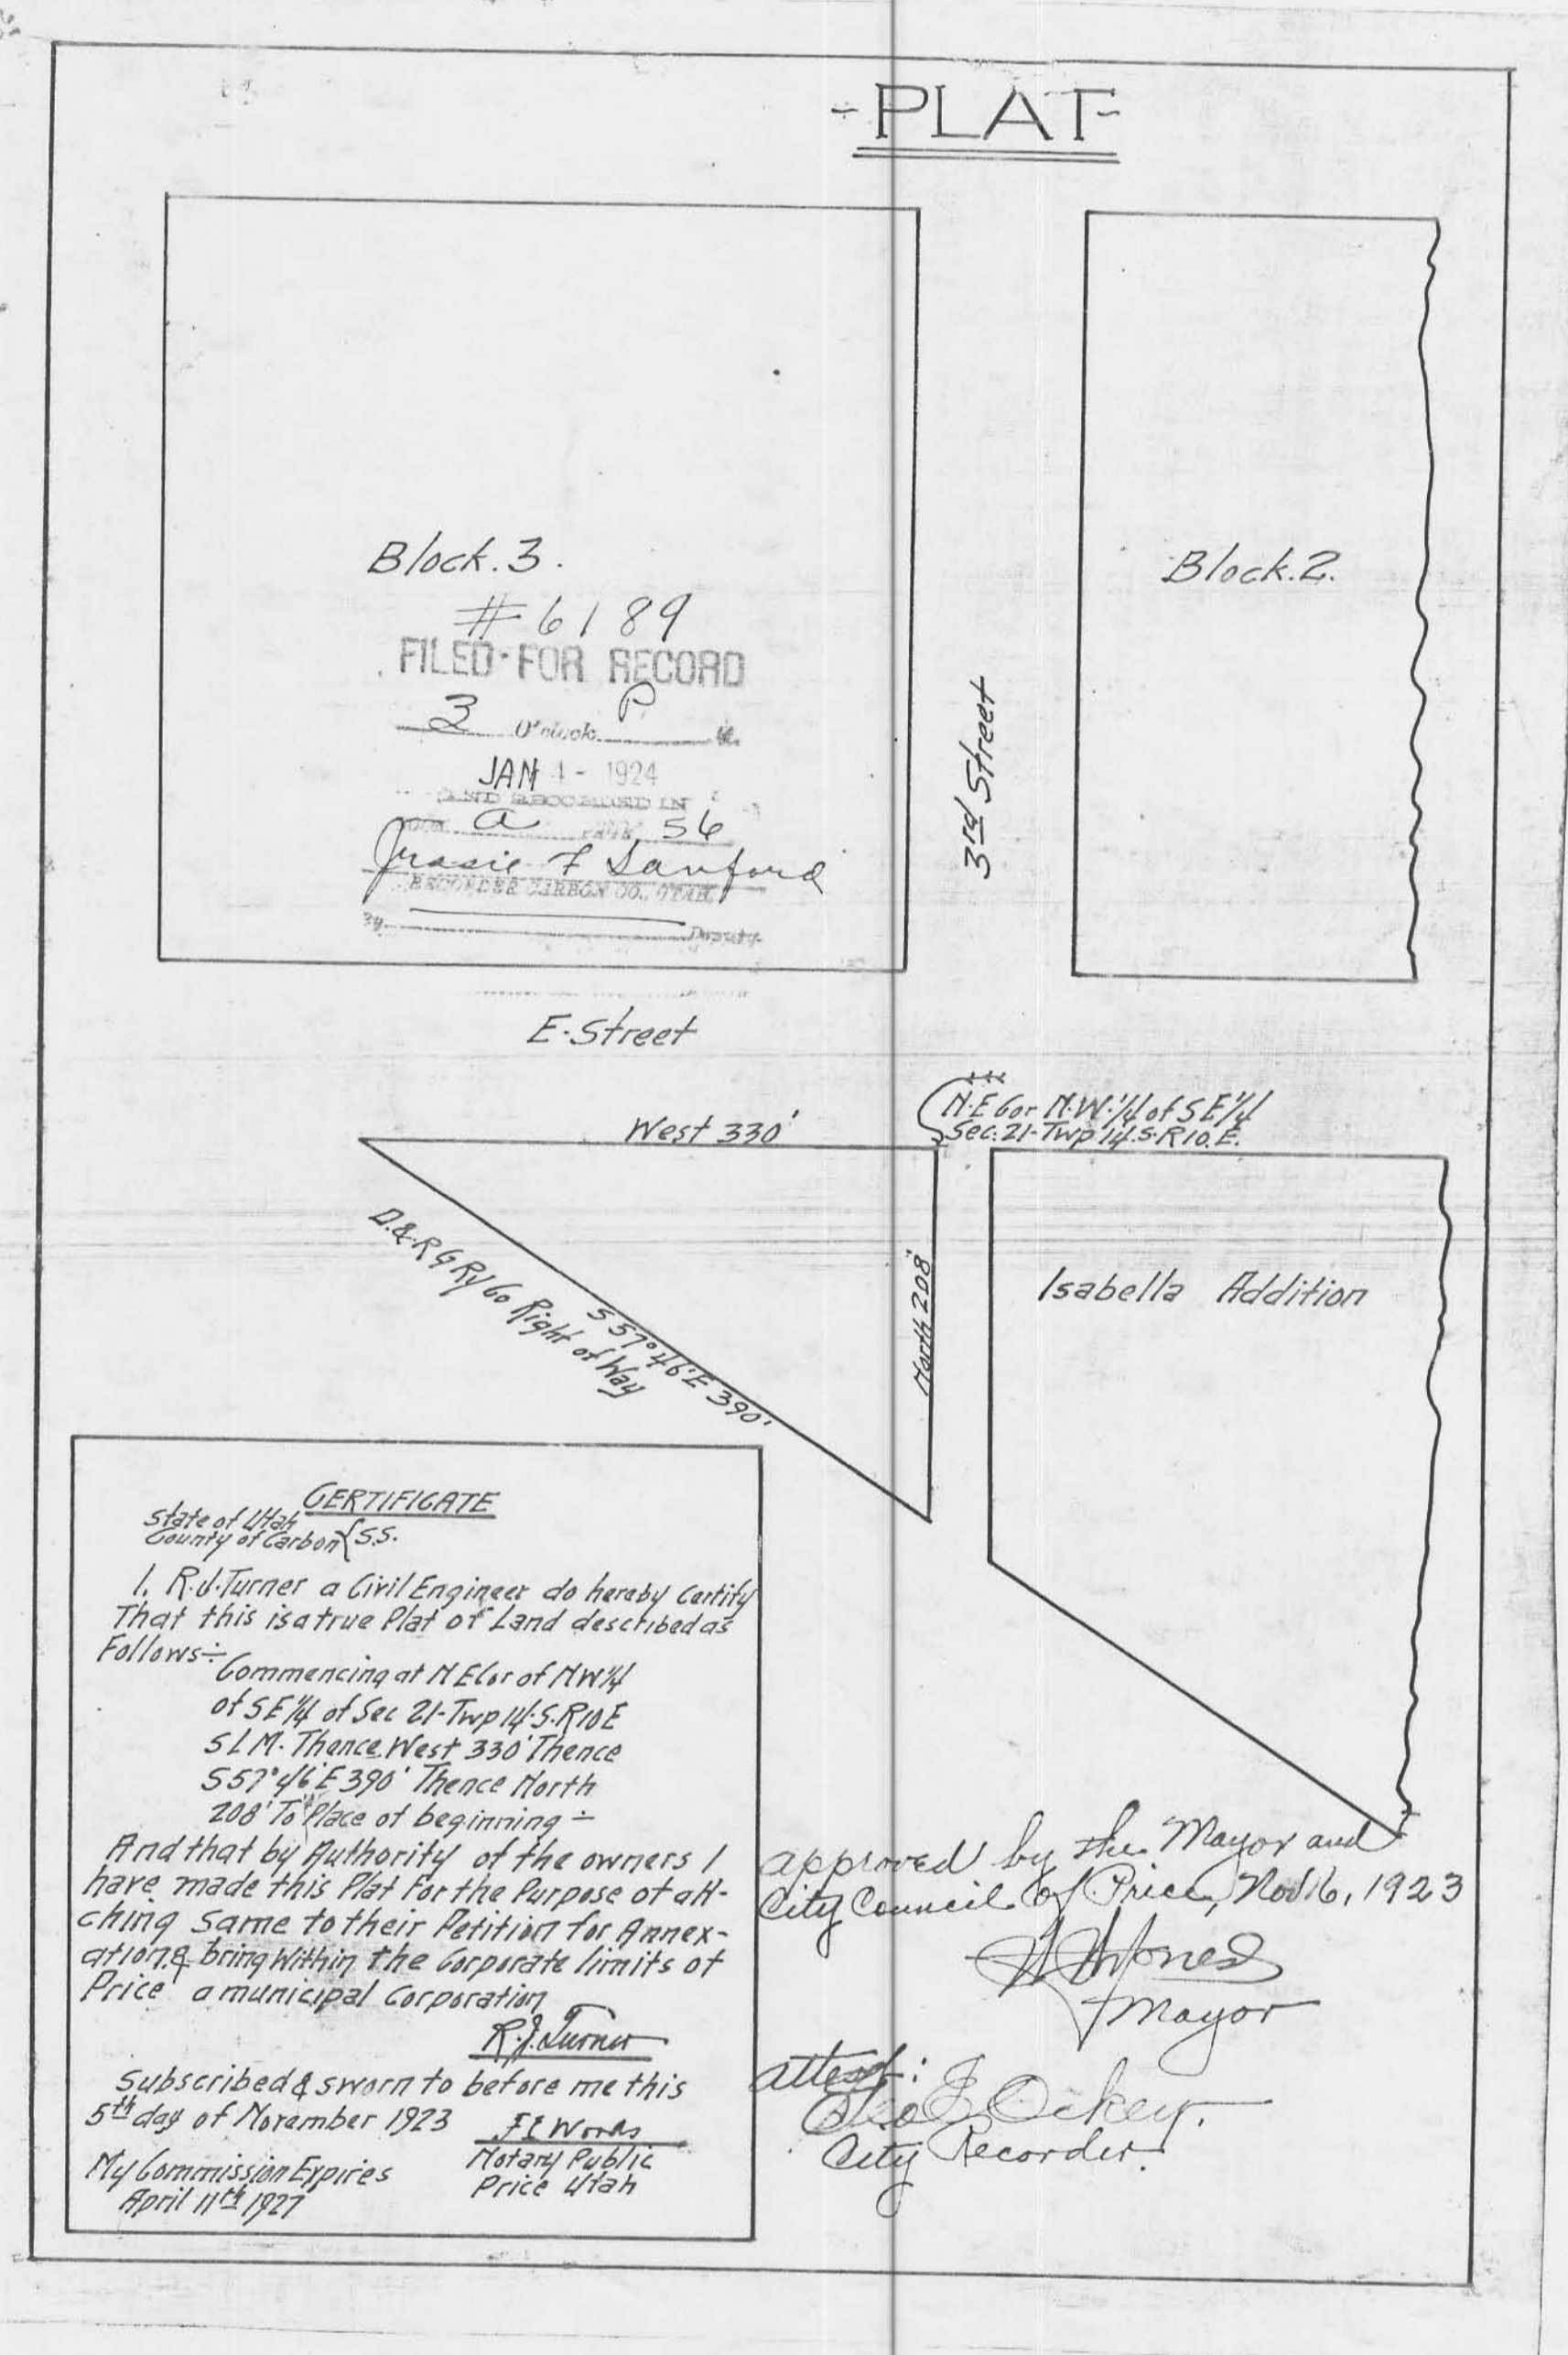 -PLAT-
Block.3.
#6189
FILED-FOR RECORD
3 O'clock P M.
JAN 4 - 1924
AND RECORDED IN
BOOK a PAGE 56
F Sanford
RECORDER CARBON CO., UTAH.
By Deputy.
Block.2.
3rd Street
E-Street
N.E Cor N.W.1/4 of SE1/4
Sec.21-Twp 14.S.R10.E.
West 330'
North 208'
S 57°46'E 390'
D.&.R G Ry Co Right of Way
Isabella Addition
CERTIFICATE
State of Utah
County of Carbon } S.S.
I. R.J.Turner a Civil Engineer do hereby Certify
That this is a true Plat of Land described as
Follows÷
Commencing at N E Cor of NW1/4
of SE1/4 of Sec 21-Twp 14.S.R10E
S L M. Thence West 330' Thence
S57°46'E 390' Thence North
208' To Place of beginning ÷
And that by Authority of the owners I
have made this Plat For the Purpose of att-
ching same to their Petition for Annex-
ation & bring Within the Corporate limits of
Price a municipal Corporation
R.J.Turner
Subscribed & sworn to before me this
5th day of November 1923
F E Woods
Notary Public
Price Utah
My Commission Expires
April 11th 1927
approved by the Mayor and
City Council of Price, Nov 16, 1923
Jones
Mayor
attest:
Geo J Ockey.
City Recorder.